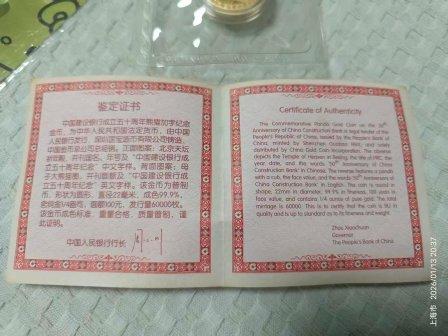 鉴定证书
中国建设银行成立五十周年熊猫加字纪念
金币，为中华人民共和国法定货币，由中国
人民银行发行，深圳国宝造币有限公司铸造，
中国金币总公司总经销。正面图案：北京天坛
祈年殿，并刊国名、年号及“中国建设银行成
立五十周年纪念”中文字样。背面图案：母
子大熊猫图，并刊面额及“中国建设银行成
立五十周年纪念”英文字样。该金币为普制
币，形状为圆形，直径22毫米，成色99.9%，
含纯金1/4盎司，面额100元，发行量60000枚。
该金币成色标准，重量合格，质量普制，谨
此证明。
中国人民银行行长
Certificate of Authenticity
The Commemorative Panda Gold Coin on the 50th
Anniversary of China Construction Bank is legal tender of the
People's Republic of China, issued by the People's Bank of
China, minted by Shenzhen Guobao Mint, and solely
distributed by China Gold Coin Incorporation. The obverse
depicts the Temple of Heaven in Beijing, the title of PRC, the
year date, and the words "50th Anniversary of China
Construction Bank" in Chinese. The reverse features a panda
with a cub, the face value, and the words "50th Anniversary of
China Construction Bank" in English. This coin is round in
shape, 22mm in diameter, 99.9% in fineness, 100 yuan in
face value, and contains 1/4 ounce of pure gold. The total
mintage is 60000. This is to certify that the coin is BU in
quality and is up to standard as to its fineness and weight.
Zhou Xiaochuan
Governor
The People's Bank of China
上海市 2026/01/13 20:37